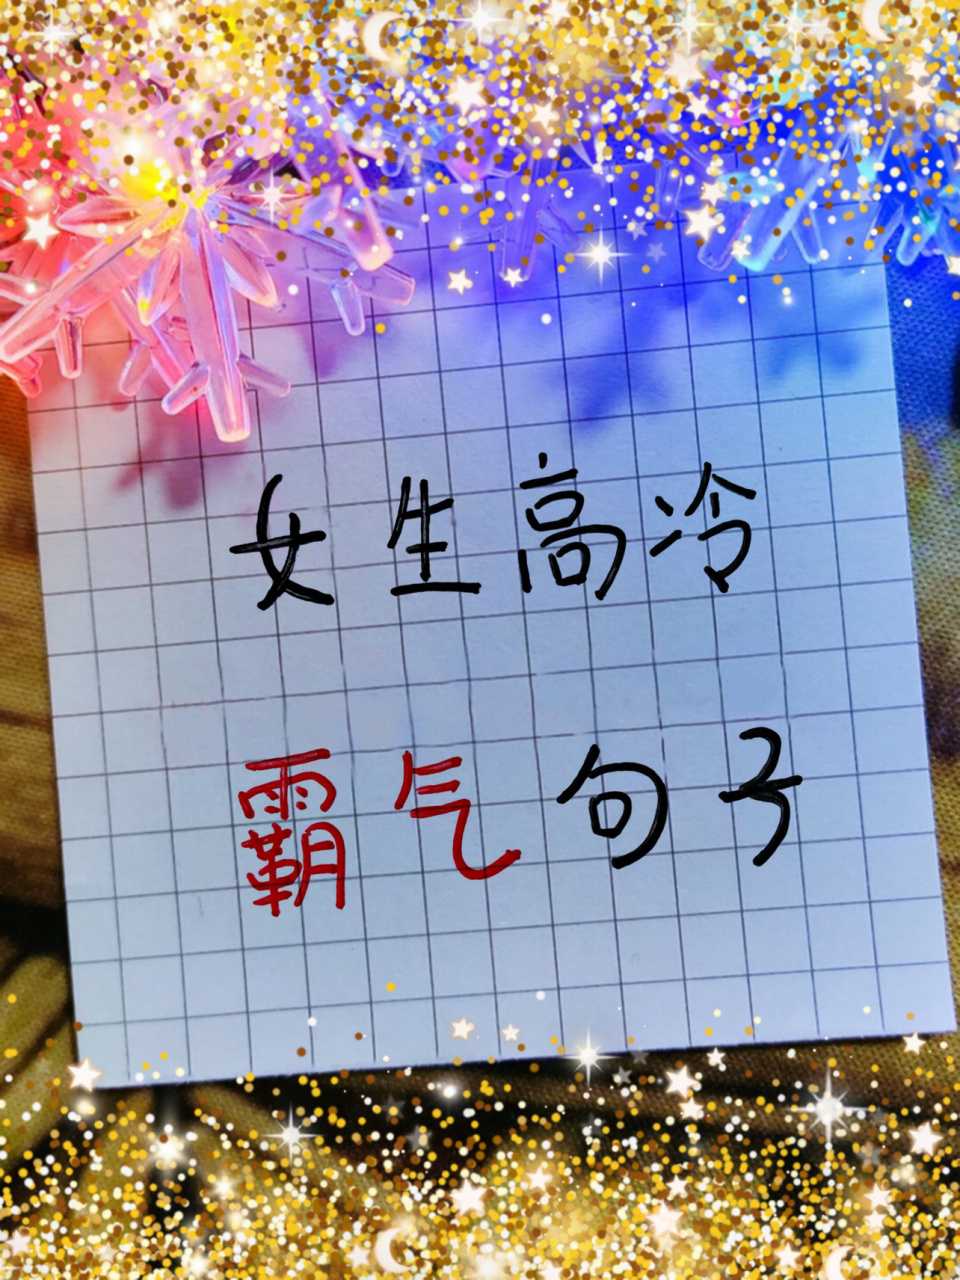 女生高冷
霸气句子